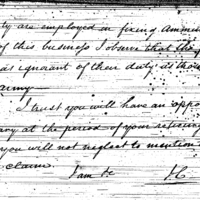 ty are employed in fixing Amm
of this business I observe that the
as ignorant of their duty as tho
army
I trust you will have an oppo
ary at the period of your retiring
you will not neglect to mention
claim.
I am &c